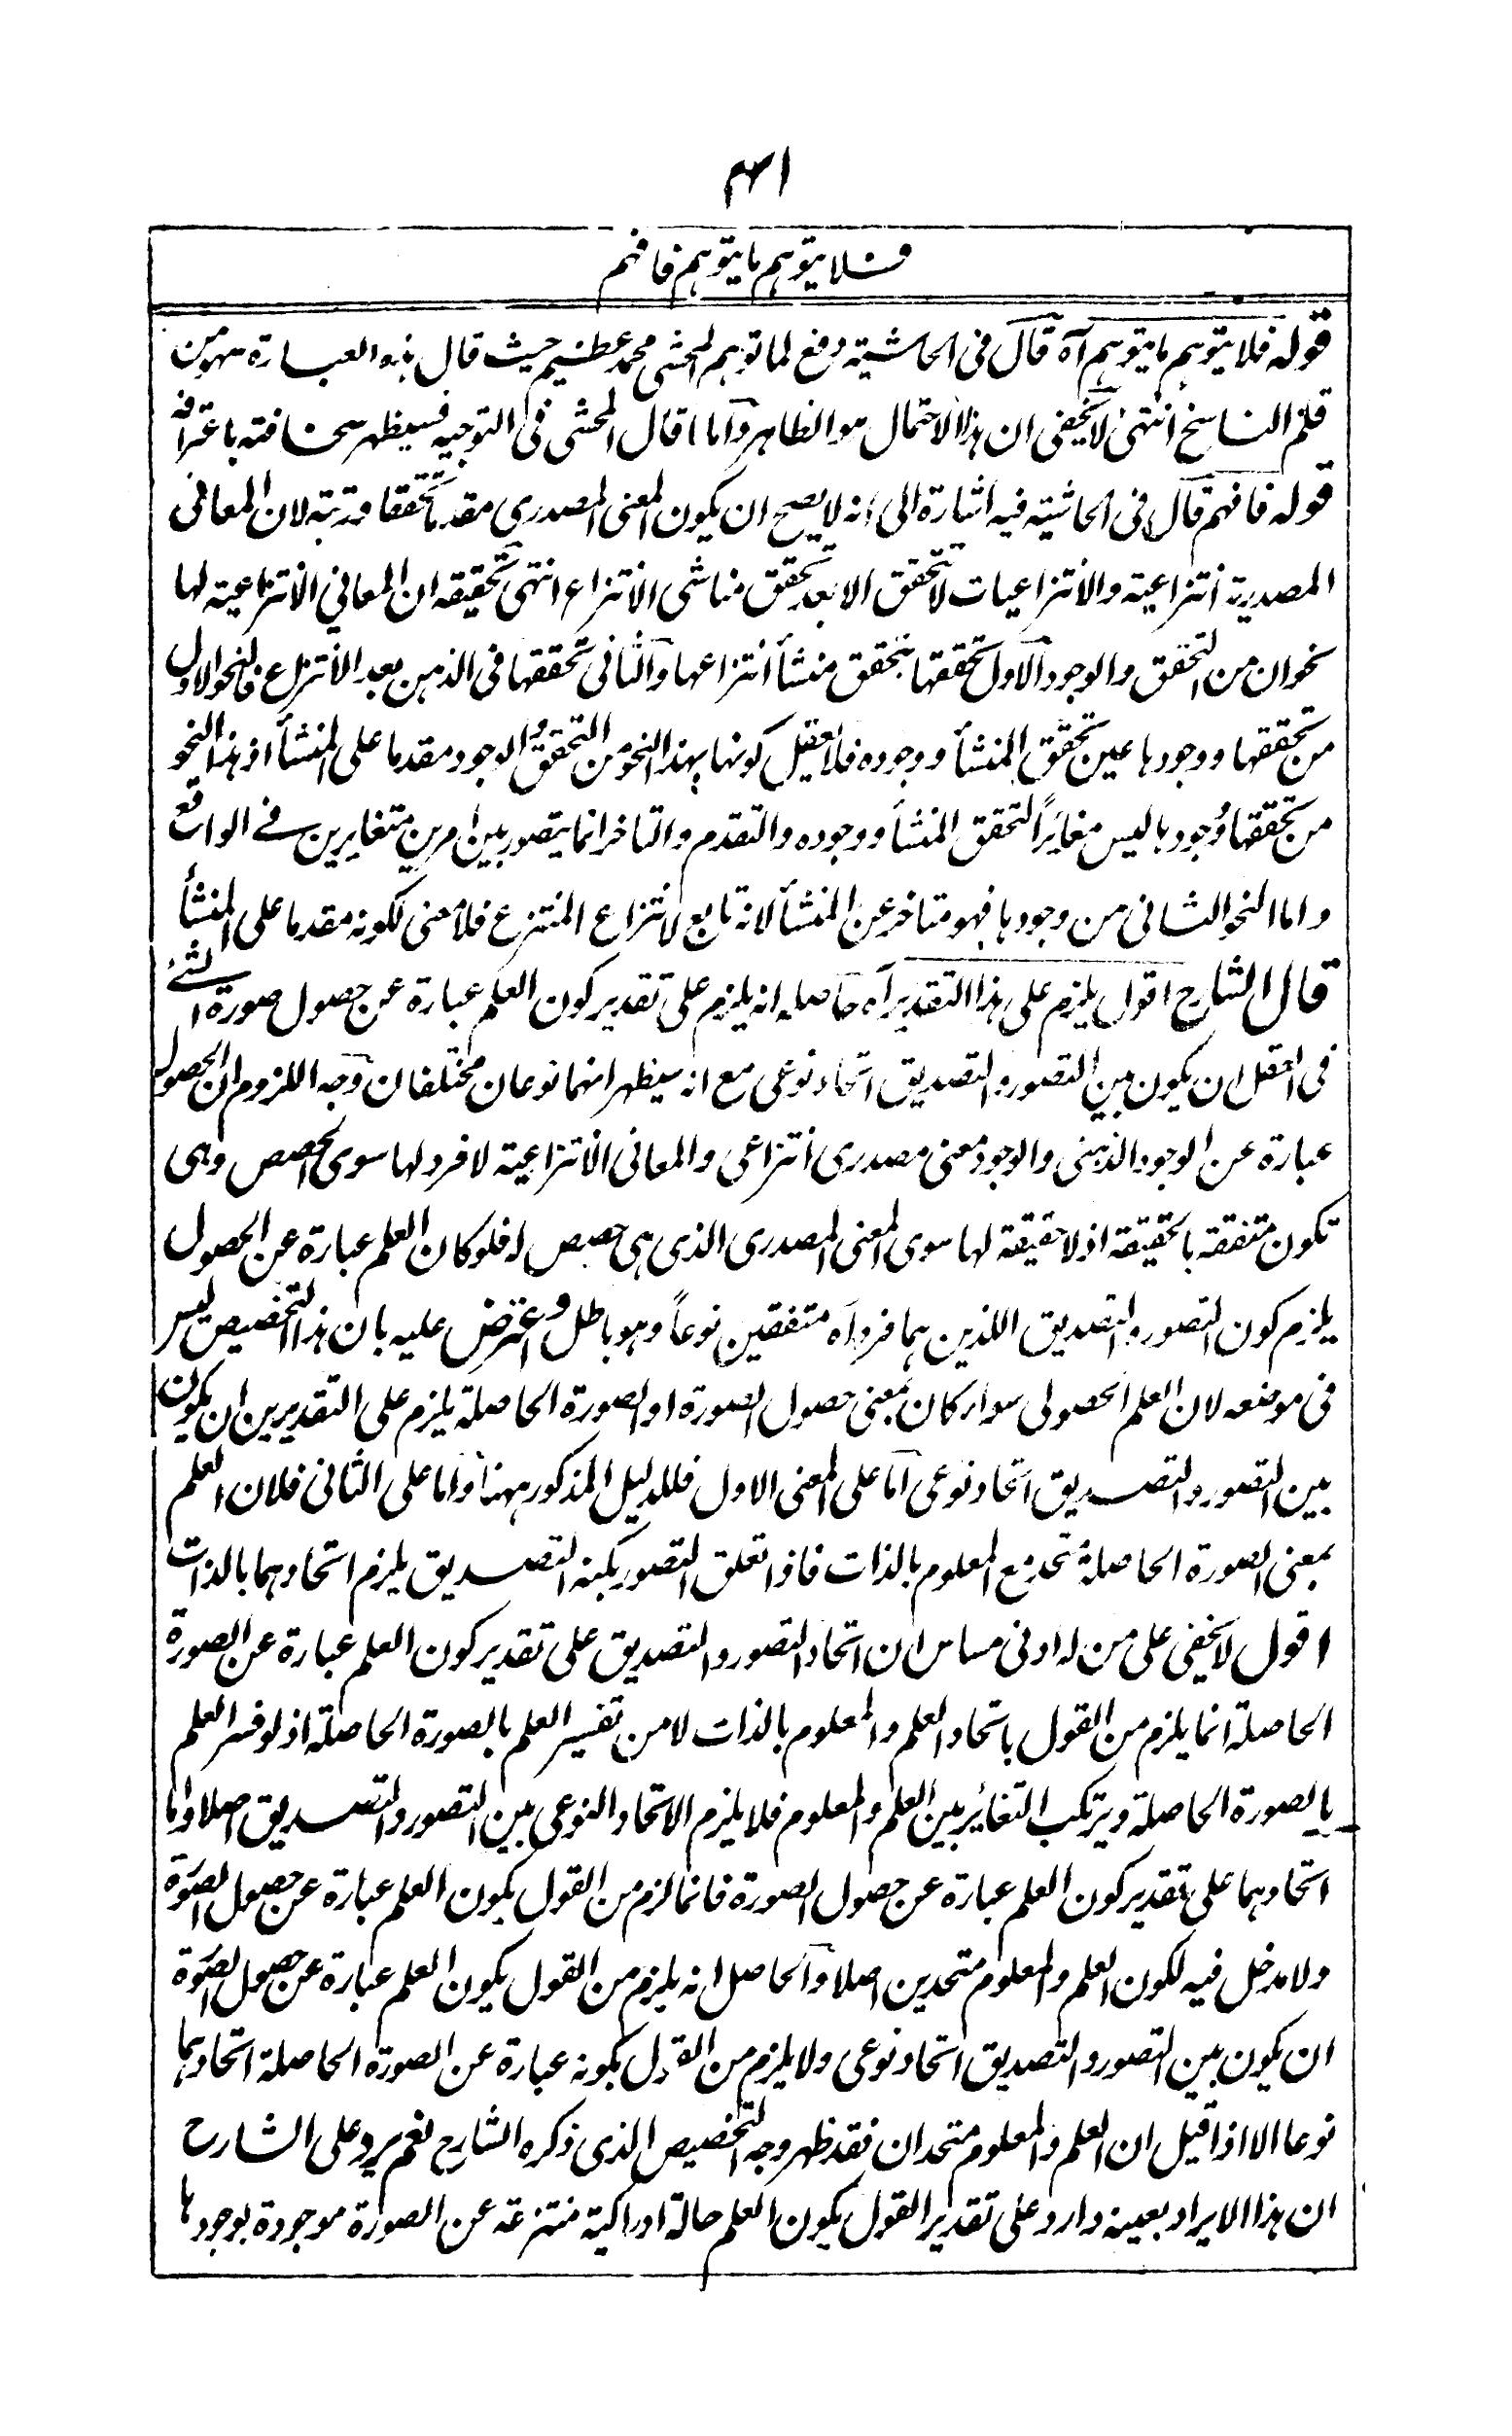 ١٤١
فلا يتوهم ما يتوهم فافهم
قوله فلا يتوهم ما يتوهم آه قال فى الحاشية دفع لما توهم المحشى محمد عظيم حيث قال هذه العبارة سهو من
قلم الناسخ انتهى لا يخفى ان هذا الاحتمال هو الظاهر واما ما قال المحشى فى التوجيه فسيظهر سخافته باعترافه
قوله فافهم قال فى الحاشية فيه اشارة الى انه لا يصح ان يكون المعنى المصدرى مقدما تحققا ومرتبة لان المعانى
المصدرية انتزاعية والانتزاعيات لا تتحقق الا بعد تحقق مناشى الانتزاع انتهى تحقيقه ان المعانى الانتزاعية لها
نحوان من التحقق والوجود الاول تحققها بتحقق منشأ انتزاعها والثانى تحققها فى الذهن بعد الانتزاع فالنحو الاول
من تحققها ووجودها عين تحقق المنشأ ووجوده فلا يعقل كونها بهذا النحو من التحقق والوجود مقدما على المنشأ اذ هذا النحو
من تحققها ووجودها ليس مغايرًا لتحقق المنشأ ووجوده والتقدم والتاخر انما يتصور بين امرين متغايرين فى الواقع
واما النحو الثانى من وجودها فهو متاخر عن المنشأ لانه تابع لانتزاع المنتزع فلا معنى لكونه مقدما على المنشأ
قال الشارح اقول يلزم على هذا التقدير آه حاصله انه يلزم على تقدير كون العلم عبارة عن حصول صورة الشئ
فى العقل ان يكون بين التصور والتصديق اتحاد نوعى مع انه سيظهر انهما نوعان مختلفان وجه اللزوم ان الحصول
عبارة عن الوجود الذهنى والوجود معنى مصدرى انتزاعى والمعانى الانتزاعية لا فرد لها سوى الحصص وهى
تكون متفقة بالحقيقة اذ لا حقيقة لها سوى المعنى المصدرى الذى هى حصص له فلو كان العلم عبارة عن الحصول
يلزم كون التصور والتصديق اللذين هما فرداه متفقين نوعاً وهو باطل واعترض عليه بان هذا التخصيص ليس
فى موضعه لان العلم الحصولى سواء كان بمعنى حصول الصورة او الصورة الحاصلة يلزم على التقديرين ان يكون
بين التصور والتصديق اتحاد نوعى اما على المعنى الاول فللدليل المذكور ههنا واما على الثانى فلان العلم
بمعنى الصورة الحاصلة متحد مع المعلوم بالذات فاذا تعلق التصور بكنه التصديق يلزم اتحادهما بالذات
اقول لا يخفى على من له ادنى مساس ان اتحاد التصور والتصديق على تقدير كون العلم عبارة عن الصورة
الحاصلة انما يلزم من القول باتحاد العلم والمعلوم بالذات لا من تفسير العلم بالصورة الحاصلة اذ لو فسر العلم
بالصورة الحاصلة ويرتكب التغائر بين العلم والمعلوم فلا يلزم الاتحاد النوعى بين التصور والتصديق اصلا واما
اتحادهما على تقدير كون العلم عبارة عن حصول الصورة فانما لزم من القول بكون العلم عبارة عن حصول الصورة
ولا مدخل فيه لكون العلم والمعلوم متحدين اصلا والحاصل انه يلزم من القول بكون العلم عبارة عن حصول الصورة
ان يكون بين التصور والتصديق اتحاد نوعى ولا يلزم من القول بكونه عبارة عن الصورة الحاصلة اتحادهما
نوعا الا اذا قيل ان العلم والمعلوم متحدان فقد ظهر وجه التخصيص الذى ذكره الشارح نعم يرد على الشارح
ان هذا الايراد بعينه وارد على تقدير القول بكون العلم حالة ادراكية منتزعة عن الصورة موجودة بوجودها